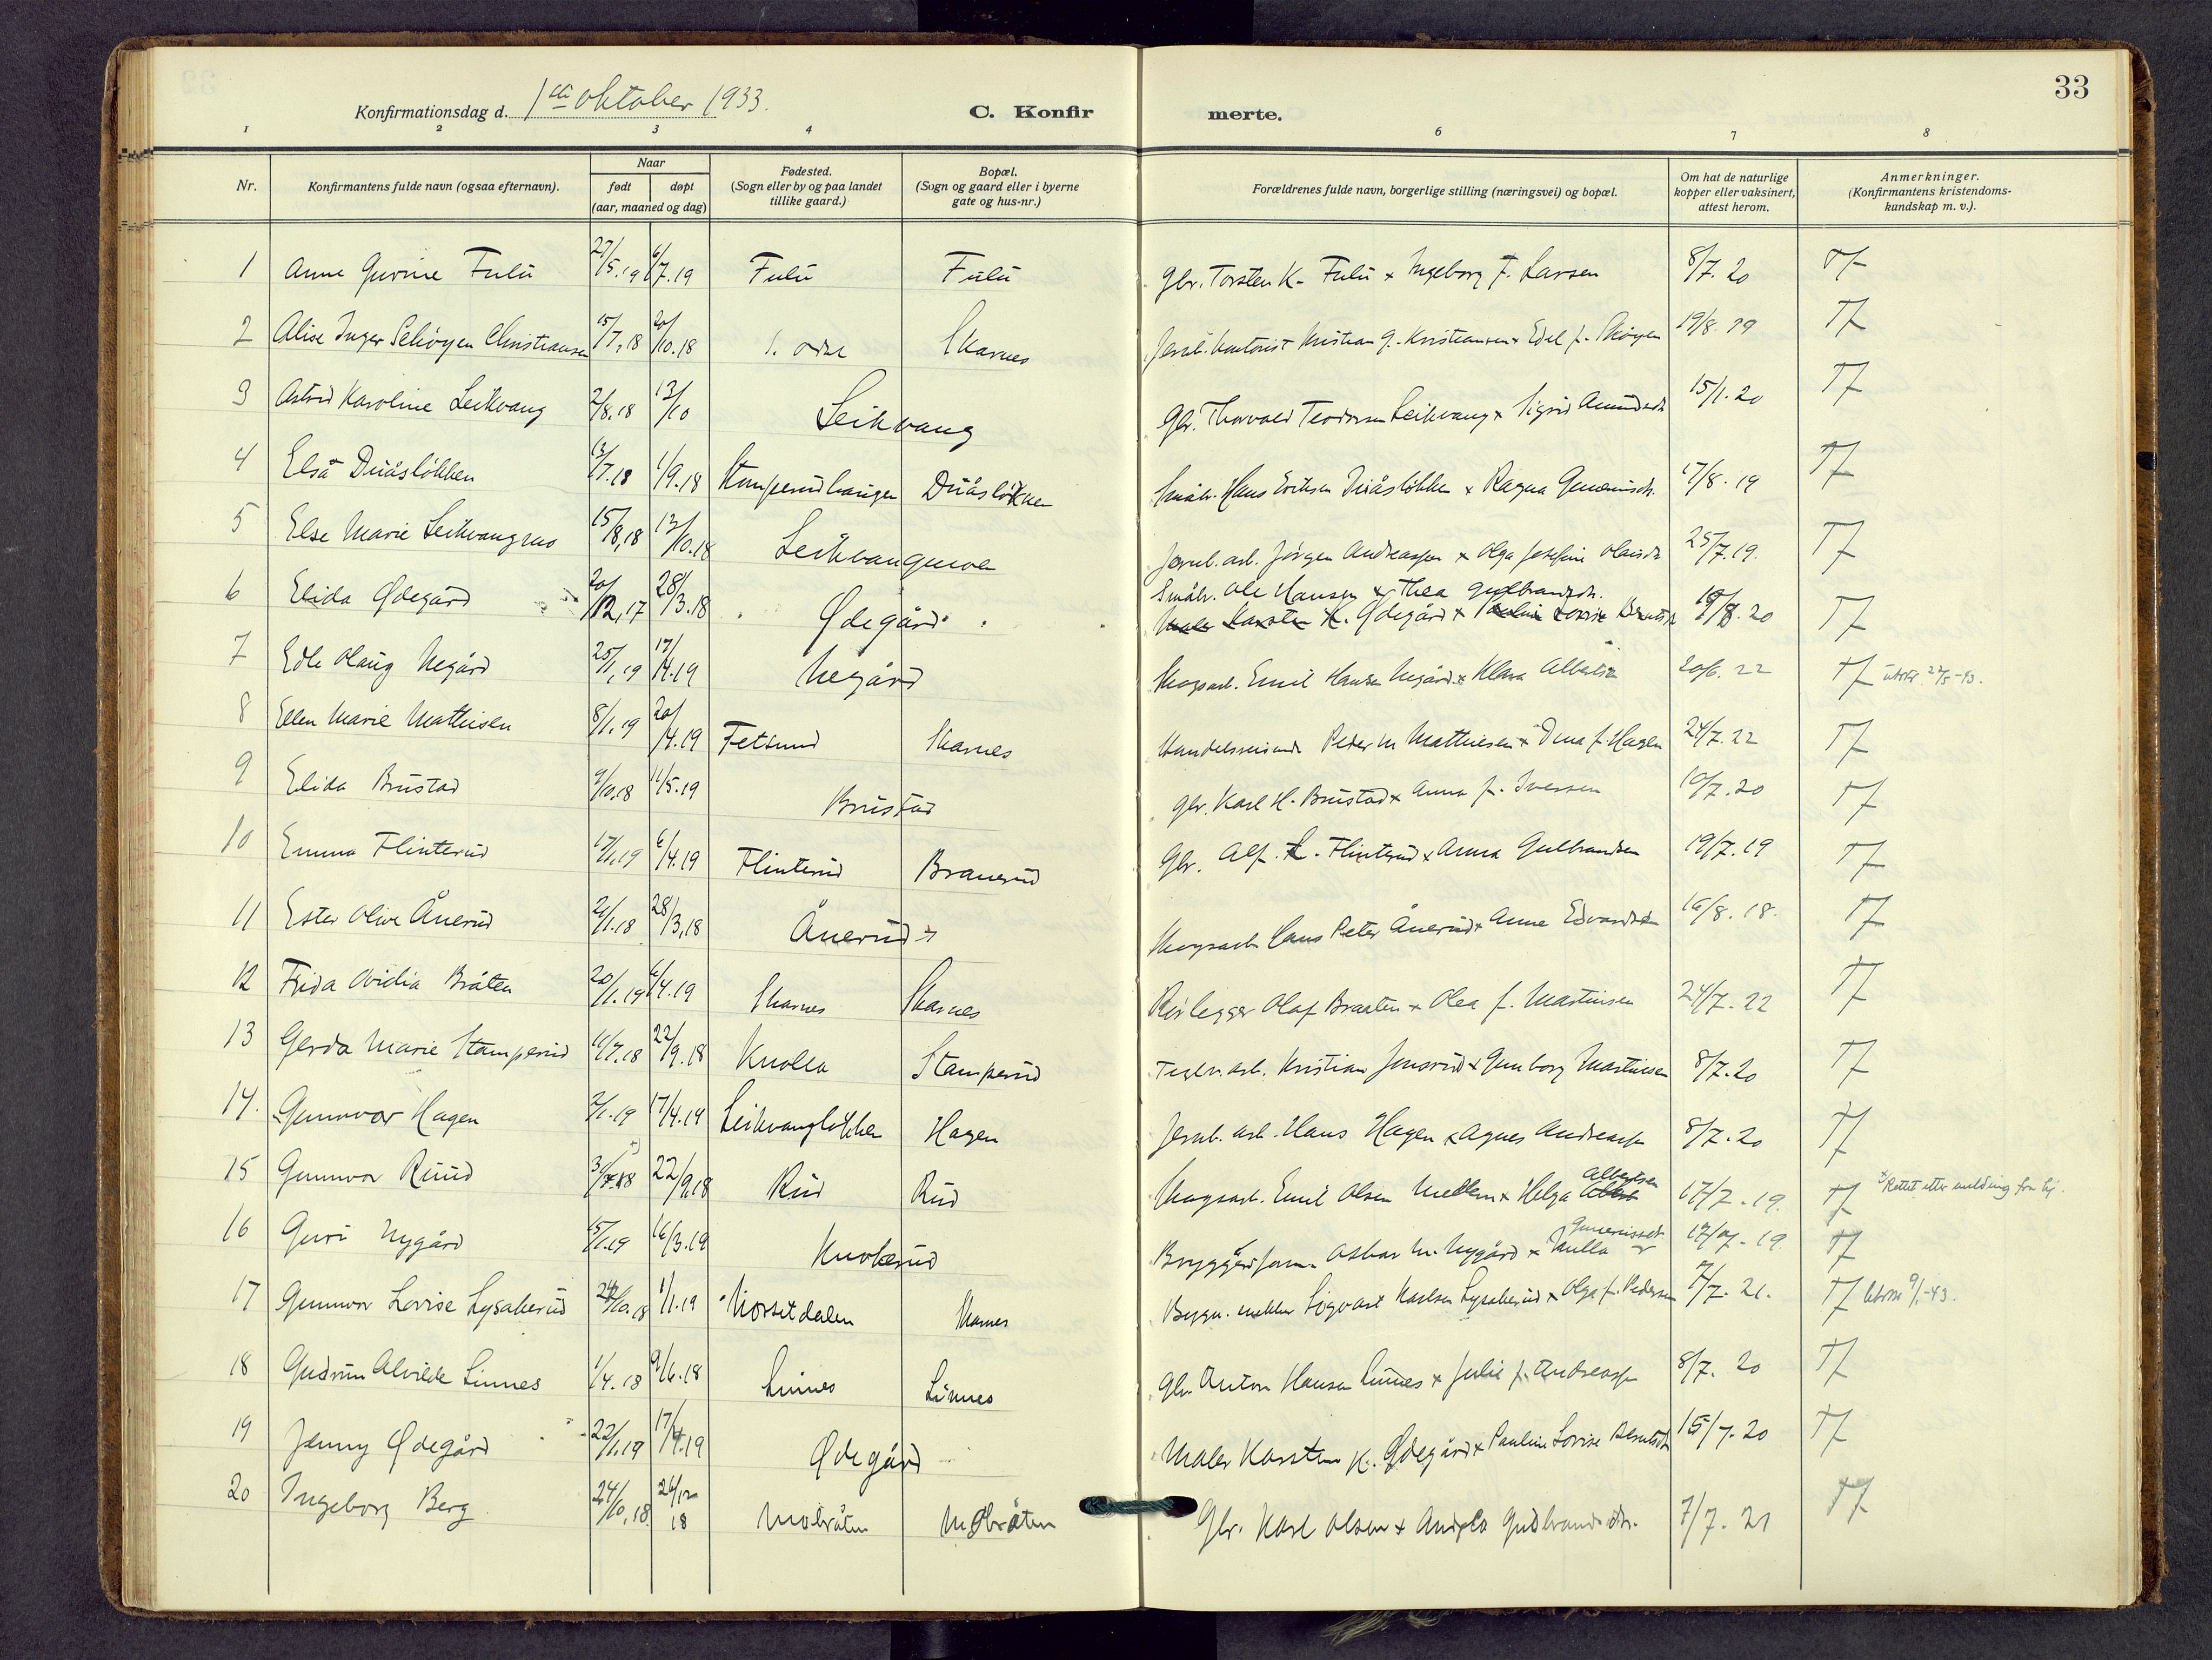 33
Konfirmationsdag d. 1ste oktober 1933.
C. Konfirmerte.
1 2 3 4 6 7 8
Nr. Konfirmantens fulde navn (ogsaa efternavn). Naar født døpt (aar, maaned og dag) Fødested. (Sogn eller by og paa landet tillike gaard.) Bopæl. (Sogn og gaard eller i byerne gate og hus-nr.) Forældrenes fulde navn, borgerlige stilling (næringsvei) og bopæl. Om hat de naturlige kopper eller vaksinert, attest herom. Anmerkninger. (Konfirmantens kristendoms-kundskap m. v.).
1 Anne Gurine Fulu 27/5.19 6/7.19 Fulu Fulu Gbr. Torsten K. Fulu x Ingeborg f. Larsen 8/7.20
2 Alise Inger Schøyen Christiansen 15/7.18 20/10.18 S. Odal Skarnes Jernb. kontorist Kristian G. Kristiansen x Edel f. Skøyen 19/8.19 TF
3 Astrid Karoline Leikvang 2/8.18 13/10 Leikvang Gbr. Thorvald Teodorsen Leikvang x Sigrid Amundsdt. 15/1.20 TF
4 Elsa Duåsløkken 13/7.18 1/9.18 Stamperudhaugen Duåsløkken Småbr. Hans Eriksen Duåsløkken x Ragna Guneriusdt. 17/8.19 TF
5 Else Marie Leikvangmo 15/8.18 13/10.18 Leikvangmoen Jernb. arb. Jörgen Andreassen x Olga Josefine Olausdt. 25/7.19. TF
6 Elida Ødegård 20/12.17 28/3.18 Ødegård Småbr. Ole Hansen x Thea Gulbrandsdt.
Maler Karsten K. Ødegård x Pauline Lovise Berntsdt. 19/8.20 TF
7 Edle Olaug Negård 25/1.19 17/4.19 Negård Skogsarb. Emil Hansen Negård x Klara Albertsen 20/6.22 TF
8 Ellen Marie Mathiesen 8/1.19 20/4.19 Fetsund Skarnes Handelsreisende Peder M Mathiesen x Dina f. Hagen 24/7.22 TF
9 Elida Brustad 9/10.18 11/5.19 Brustad Gbr. Karl H. Brustad x Anna f. Iversen 10/7.20 TF
10 Emma Flinterud 17/1.19 6/4.19 Flinterud Branerud Gbr. Alf. K. Flinterud x Anna Gulbrandsen 19/7.19 TF
11 Ester Olive Ånerud 21/1.18 28/3.18 Ånerud Skogsarb. Hans Peter Ånerud x Anne Edvardsen 16/8.18. TF
12 Frida Ovidia Bråten 20/1.19 6/4.19 Skarnes Skarnes Rörlegger Olaf Braaten x Olea f. Martinsen 24/7.22 TF
13 Gerda Marie Stamperud 11/7.18 22/9.18 Knolla Stamperud Teglv. arb. Kristian Jonsrud x Gunborg Martinsen 8/7.20 TF
14. Gunnvor Hagen 2/1.19 17/4.19 Leikvangløkken Hagen Jernb. arb. Hans Hagen x Agnes Andreassen 8/7.20 TF
15 Gunnvor Ruud 22/9.18 Rud Rud Skogsarb. Emil Olsen Mellem x Helga Albertsen 17/7.19. TF x Rettet etter melding fra
16 Guri Nygård 5/1.19 16/3.19 Knokerud Asbar M. Nygård x Gunerius­dt. 17/7.19 TF
17 Gunnvor Lovise Lysakerud 24/10.18 1/1.19 Norsetdalen Skarnes Bygn. snekker Sigvart Karlsen Lysakerud x Olga f. Pedersen 7/7.21. TF 9/1-43.
18 Gudrun Alvilde Linnes 1/4.18 9/6.18 Linnes Linnes Gbr. Anton Hansen Linnes x Julie f. Andreassen 8/7.20 TF
19 Jenny Ødegård 22/1.19 17/4.19 Ødegård Maler Karsten K. Ødegård x Pauline Lovise Berntsdt. 15/7.20 TF
20 Ingeborg Berg 24/10.18. 26/12 18 Mobråten Mobråten Gbr. Karl Olsen x Gudbrandsdtr. 7/7.21 TF